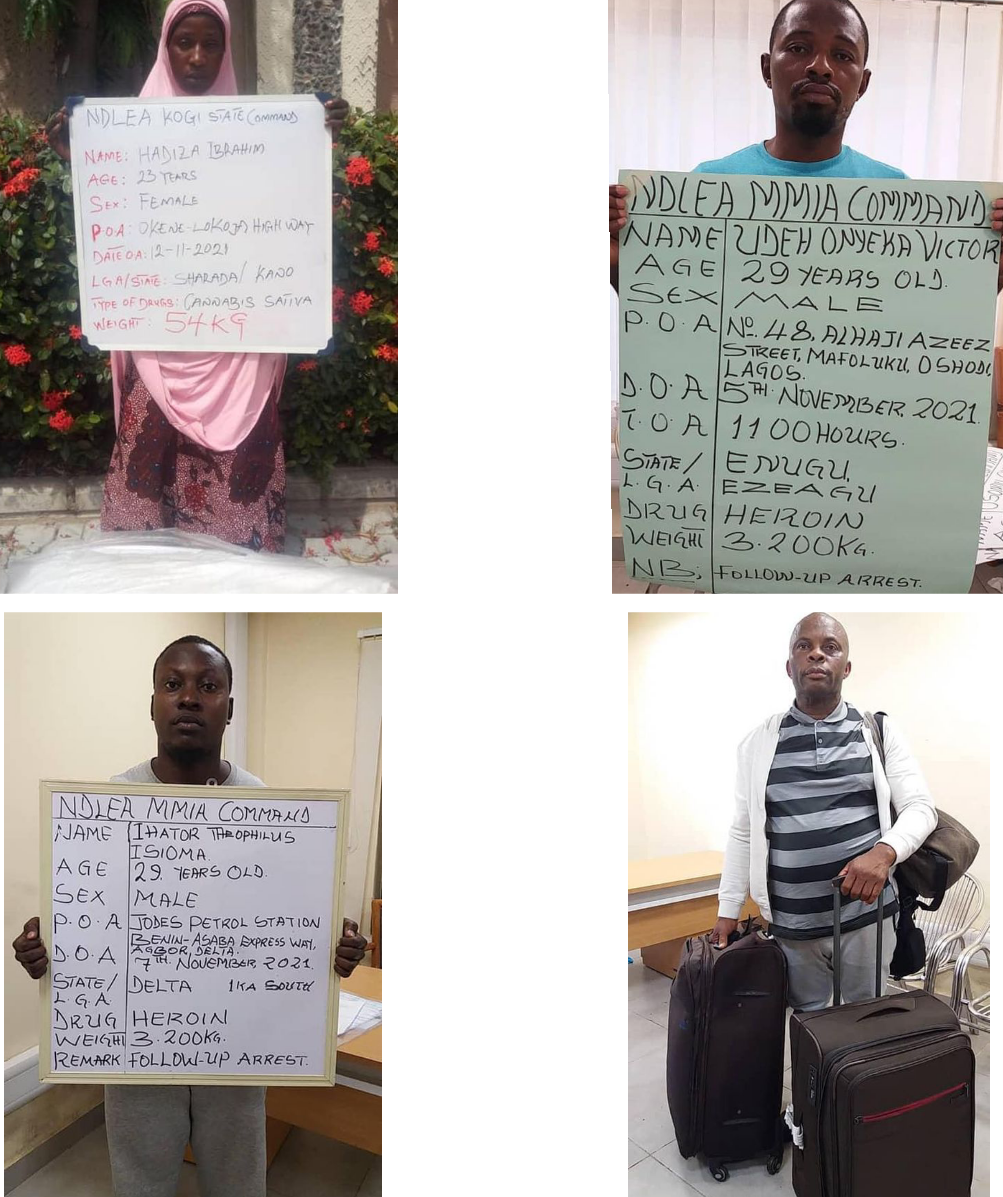 NDLEA KOGI STATE COMMAND
NAME: HADIZA IBRAHIM
AGE: 23 YEARS
SEX: FEMALE
P.O.A: OKENE-LOKOJA HIGH WAY
DATE O.A: 12-11-2021
LGA/STATE: SHARADA/ KANO
TYPE OF DRUGS: CANNABIS SATIVA
WEIGHT: 54KG
NDLEA MMIA COMMAND
NAME UDEH ONYEKA VICTOR
AGE 29 YEARS OLD.
SEX MALE
P.O.A Nº. 48, ALHAJI AZEEZ
STREET, MAFOLUKU, OSHODI,
LAGOS.
D.O.A 5TH NOVEMBER 2021.
T.O.A 1100HOURS.
STATE/ ENUGU,
L.G.A. EZEAGU
DRUG HEROIN
WEIGHT 3.200KG.
NB; FOLLOW-UP ARREST.
NDLEA MMIA COMMAND
NAME IHATOR THEOPHILUS
ISIOMA.
AGE 29 YEARS OLD.
SEX MALE
P.O.A JODES PETROL STATION
BENIN-ASABA EXPRESS WAY,
AGBOR, DELTA.
D.O.A 7TH NOVEMBER 2021.
STATE/ DELTA IKA SOUTH
L.G.A.
DRUG HEROIN
WEIGHT 3.200KG.
REMARK FOLLOW-UP ARREST.